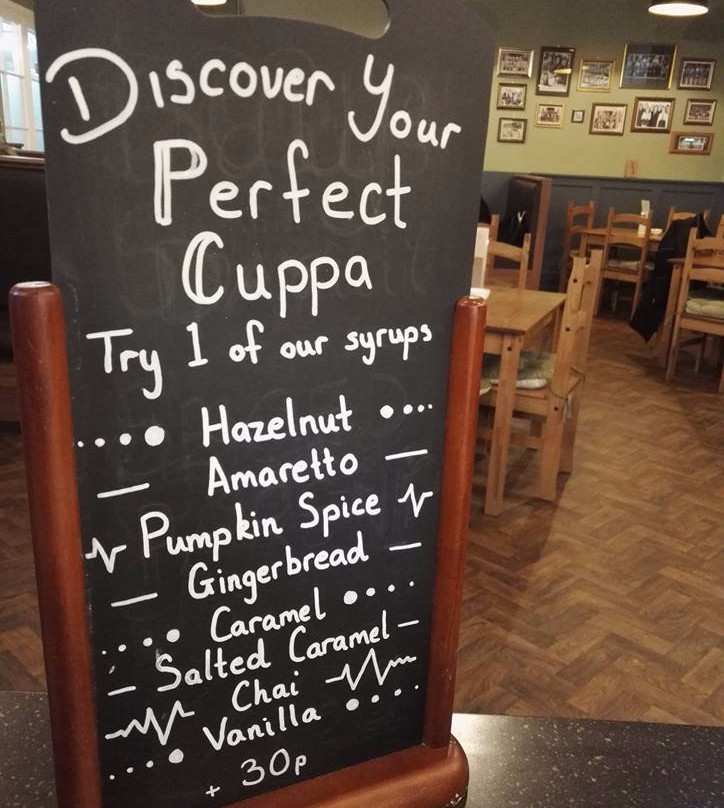 Discover Your
Perfect
Cuppa
Try 1 of our syrups
Hazelnut
Amaretto
Pumpkin Spice
Gingerbread
Caramel
Salted Caramel
Chai
Vanilla
+ 30p